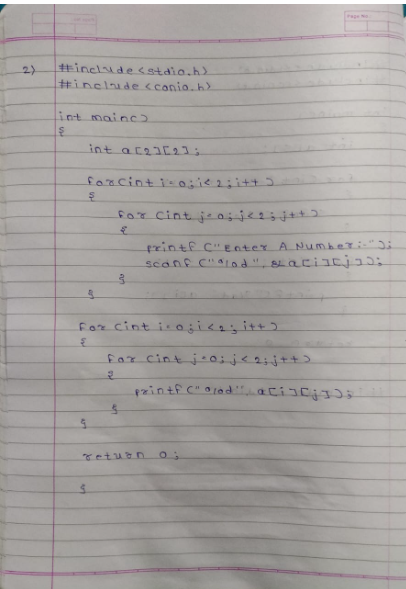 Page No.
2) #include <stdio.h>
#include <conio.h>
int main()
{
int a[2][2];
for(int i=0;i<2;i++)
{
for(int j=0;j<2;j++)
{
printf("Enter A Number:-");
scanf("%d",&a[i][j]);
}
}
for(int i=0;i<2;i++)
{
for(int j=0;j<2;j++)
{
printf("%d",a[i][j]);
}
}
return 0;
}